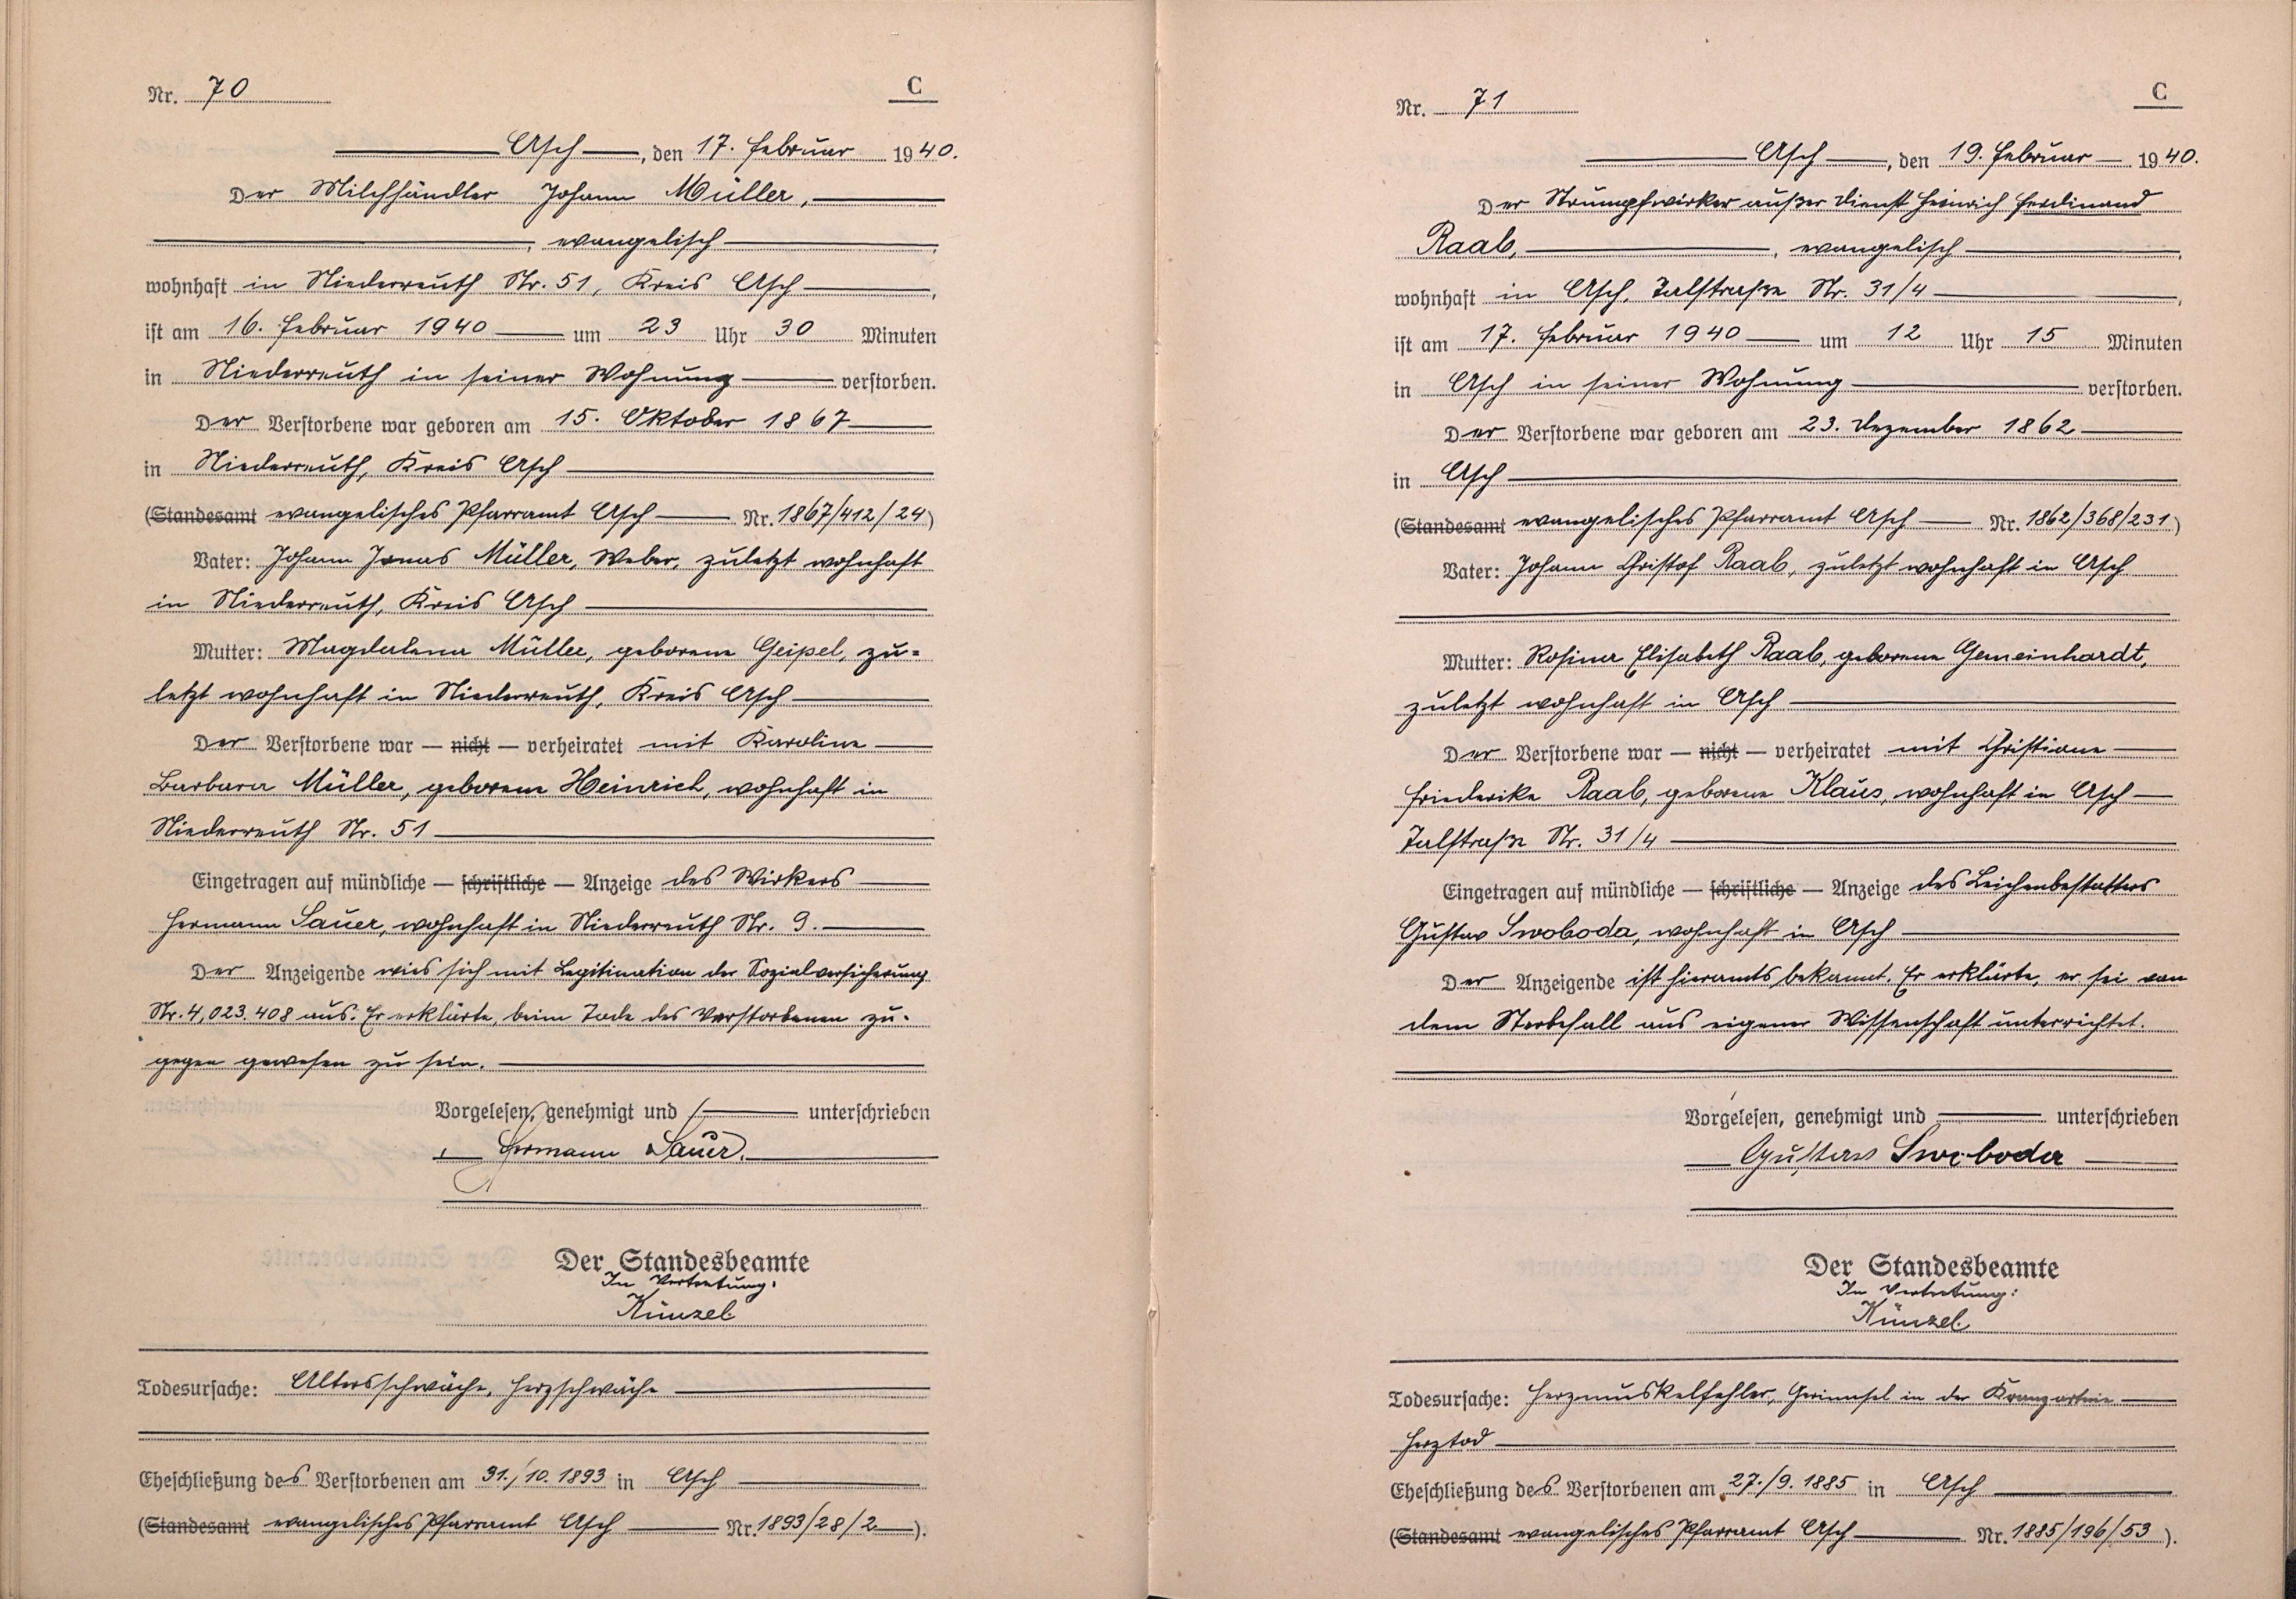 Nr. 70
C
Asch, den 17. Februar 1940.
Der Milchhändler Johann Müller,
, evangelisch,
wohnhaft in Niederreuth Nr. 51, Kreis Asch,
ist am 16. Februar 1940 um 23 Uhr 30 Minuten
in Niederreuth in seiner Wohnung verstorben.
Der Verstorbene war geboren am 15. Oktober 1867
in Niederreuth, Kreis Asch
(Standesamt evangelisches Pfarramt Asch Nr. 1867/412/24)
Vater: Johann Jonas Müller, Weber, zuletzt wohnhaft
in Niederreuth, Kreis Asch
Mutter: Magdalena Müller, geborene Geipel, zu=
letzt wohnhaft in Niederreuth, Kreis Asch
Der Verstorbene war — nicht — verheiratet mit Karoline
Barbara Müller, geborene Heinrich, wohnhaft in
Niederreuth Nr. 51
Eingetragen auf mündliche — schriftliche — Anzeige des Wirkers
Hermann Sauer, wohnhaft in Niederreuth Nr. 9.
Der Anzeigende wies sich mit Legitimation der Sozialversicherung
Nr. 4,023.408 aus. Er erklärte, beim Tode des Verstorbenen zu-
gegen gewesen zu sein.
Vorgelesen, genehmigt und unterschrieben
Hermann Sauer.
Der Standesbeamte
In Vertretung:
Künzel.
Todesursache: Altersschwäche, Herzschwäche
Eheschließung des Verstorbenen am 31./10. 1893 in Asch
(Standesamt evangelisches Pfarramt Asch Nr. 1893/28/2).
Nr. 71
C
Asch, den 19. Februar 1940.
Der Strumpfwirker außer Dienst Heinrich Ferdinand
Raab, , evangelisch,
wohnhaft in Asch, Talstraße Nr. 31/4,
ist am 17. Februar 1940 um 12 Uhr 15 Minuten
in Asch in seiner Wohnung verstorben.
Der Verstorbene war geboren am 23. Dezember 1862
in Asch
(Standesamt evangelisches Pfarramt Asch Nr. 1862/368/231)
Vater: Johann Christof Raab, zuletzt wohnhaft in Asch
Mutter: Rosina Elisabeth Raab, geborene Gemeinhardt,
zuletzt wohnhaft in Asch
Der Verstorbene war — nicht — verheiratet mit Christiane
Friederike Raab, geborene Klaus, wohnhaft in Asch
Talstraße Nr. 31/4
Eingetragen auf mündliche — schriftliche — Anzeige des Leichenbestatters
Gustav Swoboda, wohnhaft in Asch
Der Anzeigende ist hieramts bekannt. Er erklärte, er sei von
dem Sterbefall aus eigener Wissenschaft unterrichtet.
Vorgelesen, genehmigt und unterschrieben
Gustav Swoboda
Der Standesbeamte
In Vertretung:
Künzel.
Todesursache: Herzmuskelfehler, Gerinnsel in der Kranzarterie
Herztod
Eheschließung des Verstorbenen am 27./9. 1885 in Asch
(Standesamt evangelisches Pfarramt Asch Nr. 1885/196/53).